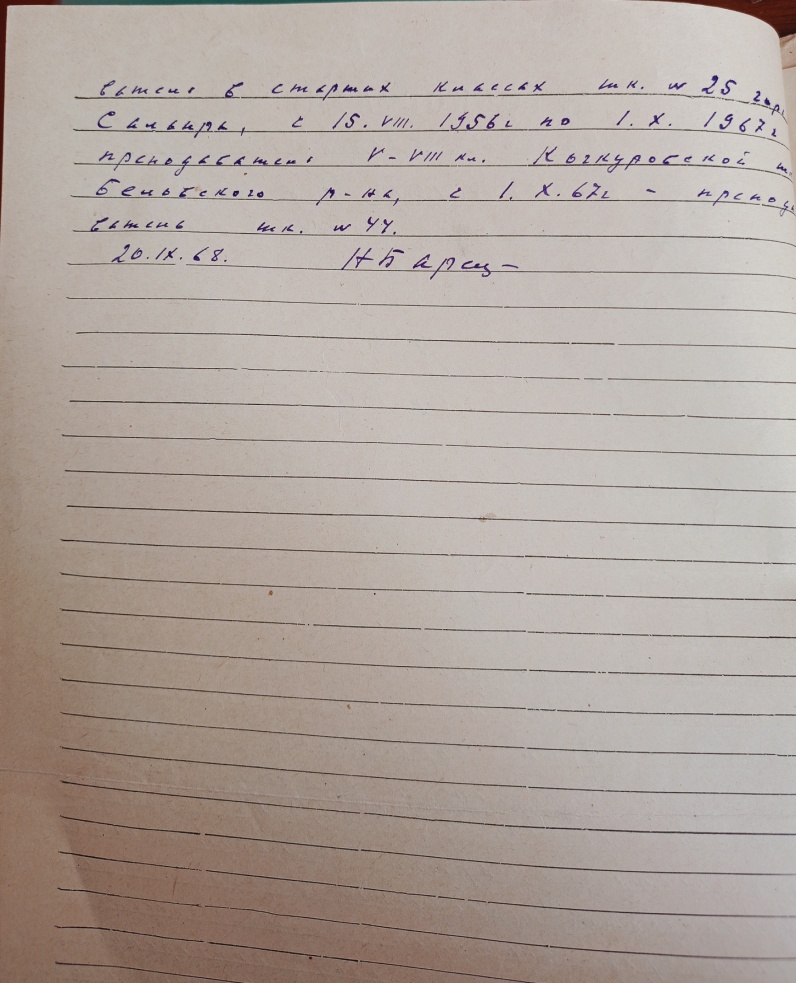 ватель в старших классах шк. № 25 гор.
Салаира, с 15. VIII. 1956г по 1. X. 1967г
преподаватель V-VIII кл. Кочкуровской ш.
Беловского р-на, с 1. X. 67г - препода
ватель шк. № 44.
20.IX.68. НБарсц